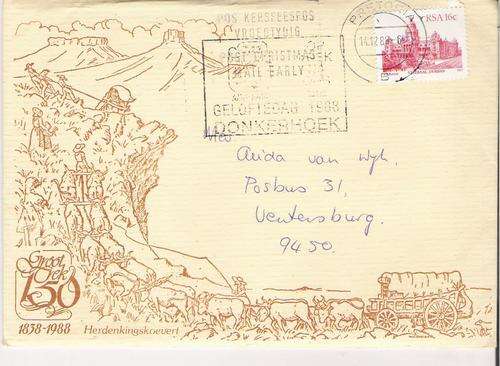 POS KERSFEESPOS
VROEGTYDIG
POST CHRISTMAS
MAIL EARLY
GELOFTEDAG 1988
DONKERHOEK
PRETORIA
14.12.88
RSA 16c
Mev
Anida van Wyk.
Posbus 31,
Ventersburg.
9450.
Groot
Trek
150
1838-1988 Herdenkingskoevert